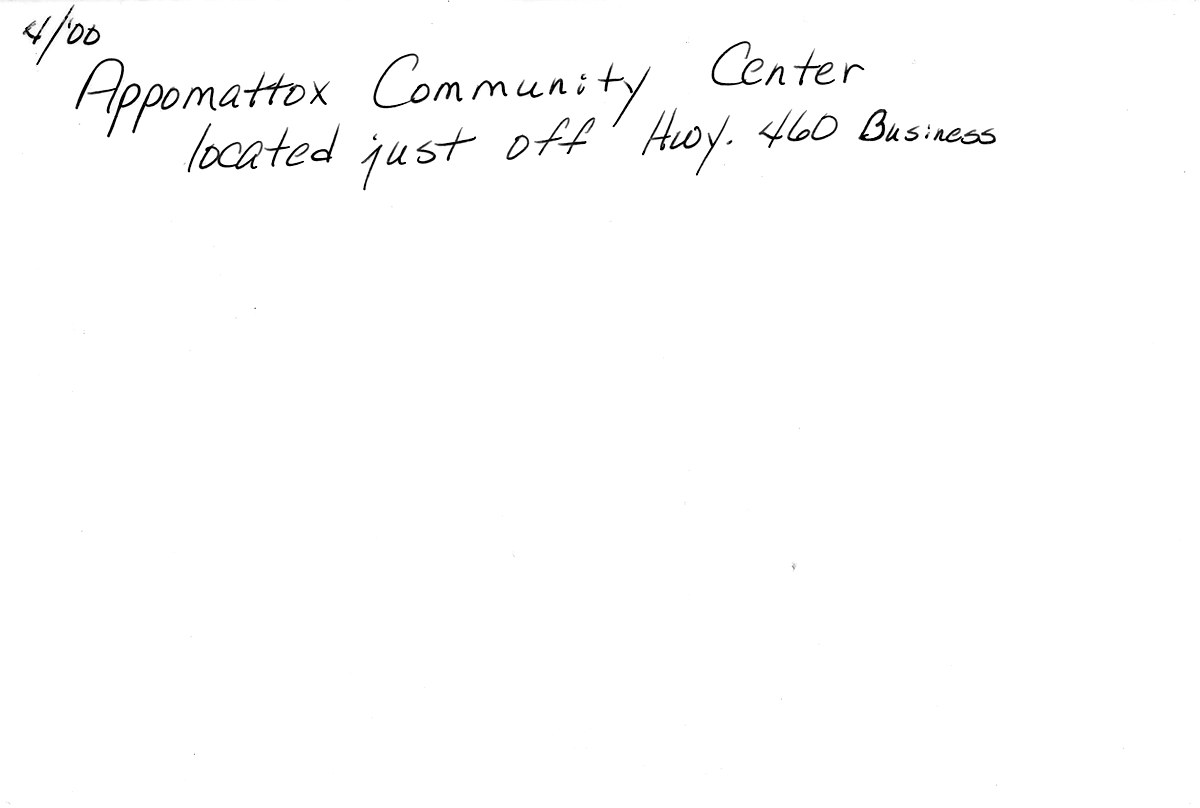 4/'00
Appomattox Community Center
located just off Hwy. 460 Business